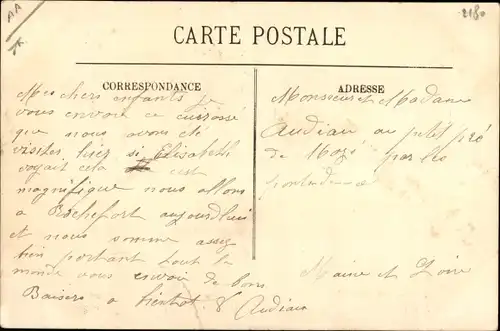 AA
2180
CARTE POSTALE
CORRESPONDANCE
Mes chers enfants je
vous envoie ce cuirassé
que nous avons été
visiter hier si Elisabeth
voyait cela c'est
magnifique nous allons
a Rochefort aujourd'hui
et nous somme assez
bien portant tout le
monde vous envoir de bons
Baisers a bientot Audiau
ADRESSE
Monsieur et Madame
Audiau au petit pré
de Mazé par les
Maine et Loire